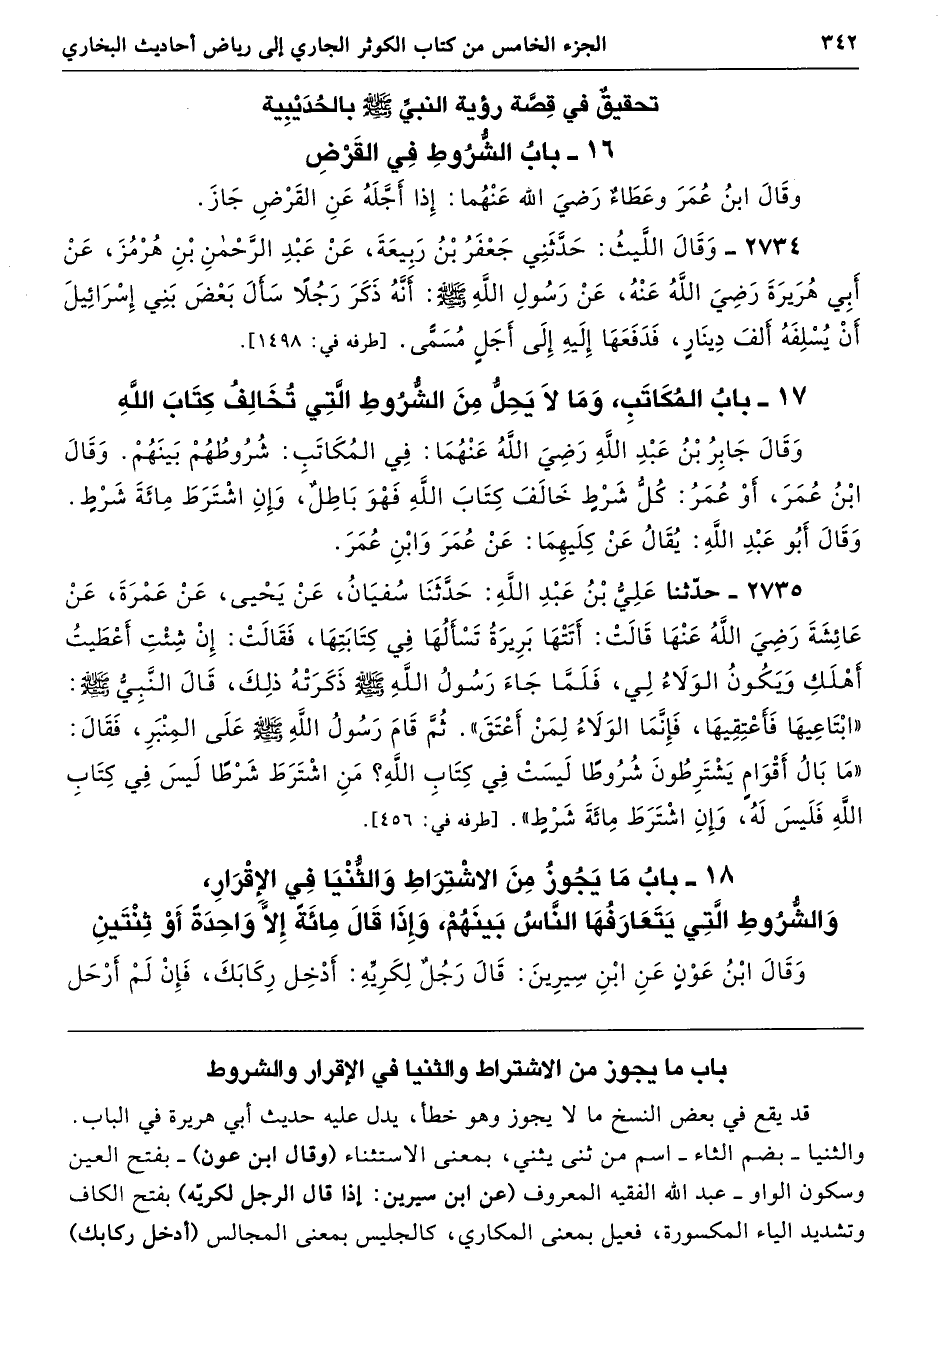 ٣٤٢ الجزء الخامس من كتاب الكوثر الجاري إلى رياض أحاديث البخاري
تحقيقٌ في قِصَّة رؤية النبيِّ ﷺ بالحُدَيْبِية
١٦ ـ بابُ الشُّرُوطِ فِي القَرْضِ
وقَالَ ابنُ عُمَرَ وعَطَاءٌ رَضِيَ الله عَنْهُما: إذا أَجَّلَهُ عَنِ القَرْضِ جَازَ.
٢٧٣٤ ـ وَقَالَ اللَّيثُ: حَدَّثَنِي جَعْفَرُ بْنُ رَبِيعَةَ، عَنْ عَبْدِ الرَّحْمٰنِ بْنِ هُرْمُزَ، عَنْ
أَبِي هُرَيرَةَ رَضِيَ اللَّهُ عَنْهُ، عَنْ رَسُولِ اللَّهِ ﷺ: أَنَّهُ ذَكَرَ رَجُلًا سَأَلَ بَعْضَ بَنِي إِسْرَائِيلَ
أَنْ يُسْلِفَهُ أَلفَ دِينَارٍ، فَدَفَعَهَا إِلَيهِ إِلَى أَجَلٍ مُسَمًّى. [طرفه في: ١٤٩٨].
١٧ ـ بابُ المُكَاتَبِ، وَمَا لاَ يَحِلُّ مِنَ الشُّرُوطِ الَّتِي تُخَالِفُ كِتَابَ اللَّهِ
وَقَالَ جَابِرُ بْنُ عَبْدِ اللَّهِ رَضِيَ اللَّهُ عَنْهُمَا: فِي المُكَاتَبِ: شُرُوطُهُمْ بَينَهُمْ. وَقَالَ
ابْنُ عُمَرَ، أَوْ عُمَرُ: كُلُّ شَرْطٍ خَالَفَ كِتَابَ اللَّهِ فَهْوَ بَاطِلٌ، وَإِنِ اشْتَرَطَ مِائَةَ شَرْطٍ.
وَقَالَ أَبُو عَبْدِ اللَّهِ: يُقَالُ عَنْ كِلَيهِمَا: عَنْ عُمَرَ وَابْنِ عُمَرَ.
٢٧٣٥ ـ حدّثنا عَلِيُّ بْنُ عَبْدِ اللَّهِ: حَدَّثَنَا سُفيَانُ، عَنْ يَحْيى، عَنْ عَمْرَةَ، عَنْ
عَائِشَةَ رَضِيَ اللَّهُ عَنْهَا قَالَتْ: أَتَتْهَا بَرِيرَةُ تَسْأَلُهَا فِي كِتَابَتِهَا، فَقَالَتْ: إِنْ شِئْتِ أَعْطَيتُ
أَهْلَكِ وَيَكُونُ الوَلَاءُ لِي، فَلَمَّا جَاءَ رَسُولُ اللَّهِ ﷺ ذَكَرَتْهُ ذلِكَ، قَالَ النَّبِيُّ ﷺ:
«ابْتَاعِيهَا فَأَعْتِقِيهَا، فَإِنَّمَا الوَلَاءُ لِمَنْ أَعْتَقَ». ثُمَّ قَامَ رَسُولُ اللَّهِ ﷺ عَلَى المِنْبَرِ، فَقَالَ:
«مَا بَالُ أَقْوَامٍ يَشْتَرِطُونَ شُرُوطًا لَيسَتْ فِي كِتَابِ اللَّهِ؟ مَنِ اشْتَرَطَ شَرْطًا لَيسَ فِي كِتَابِ
اللَّهِ فَلَيسَ لَهُ، وَإِنِ اشْتَرَطَ مِائَةَ شَرْطٍ». [طرفه في: ٤٥٦].
١٨ ـ بابُ مَا يَجُوزُ مِنَ الاشْتِرَاطِ وَالثُّنْيَا فِي الإِقْرَارِ،
وَالشُّرُوطِ الَّتِي يَتَعَارَفُهَا النَّاسُ بَينَهُمْ، وَإِذَا قَالَ مِائَةً إِلاَّ وَاحِدَةً أَوْ ثِنْتَينِ
وَقَالَ ابْنُ عَوْنٍ عَنِ ابْنِ سِيرِينَ: قَالَ رَجُلٌ لِكَرِيِّهِ: أَدْخِل رِكَابَكَ، فَإِنْ لَمْ أَرْحَل
باب ما يجوز من الاشتراط والثنيا في الإقرار والشروط
قد يقع في بعض النسخ ما لا يجوز وهو خطأ، يدل عليه حديث أبي هريرة في الباب.
والثنيا ـ بضم الثاء ـ اسم من ثنى يثني، بمعنى الاستثناء (وقال ابن عون) ـ بفتح العين
وسكون الواو ـ عبد الله الفقيه المعروف (عن ابن سيرين: إذا قال الرجل لكريّه) بفتح الكاف
وتشديد الياء المكسورة، فعيل بمعنى المكاري، كالجليس بمعنى المجالس (أدخل ركابك)